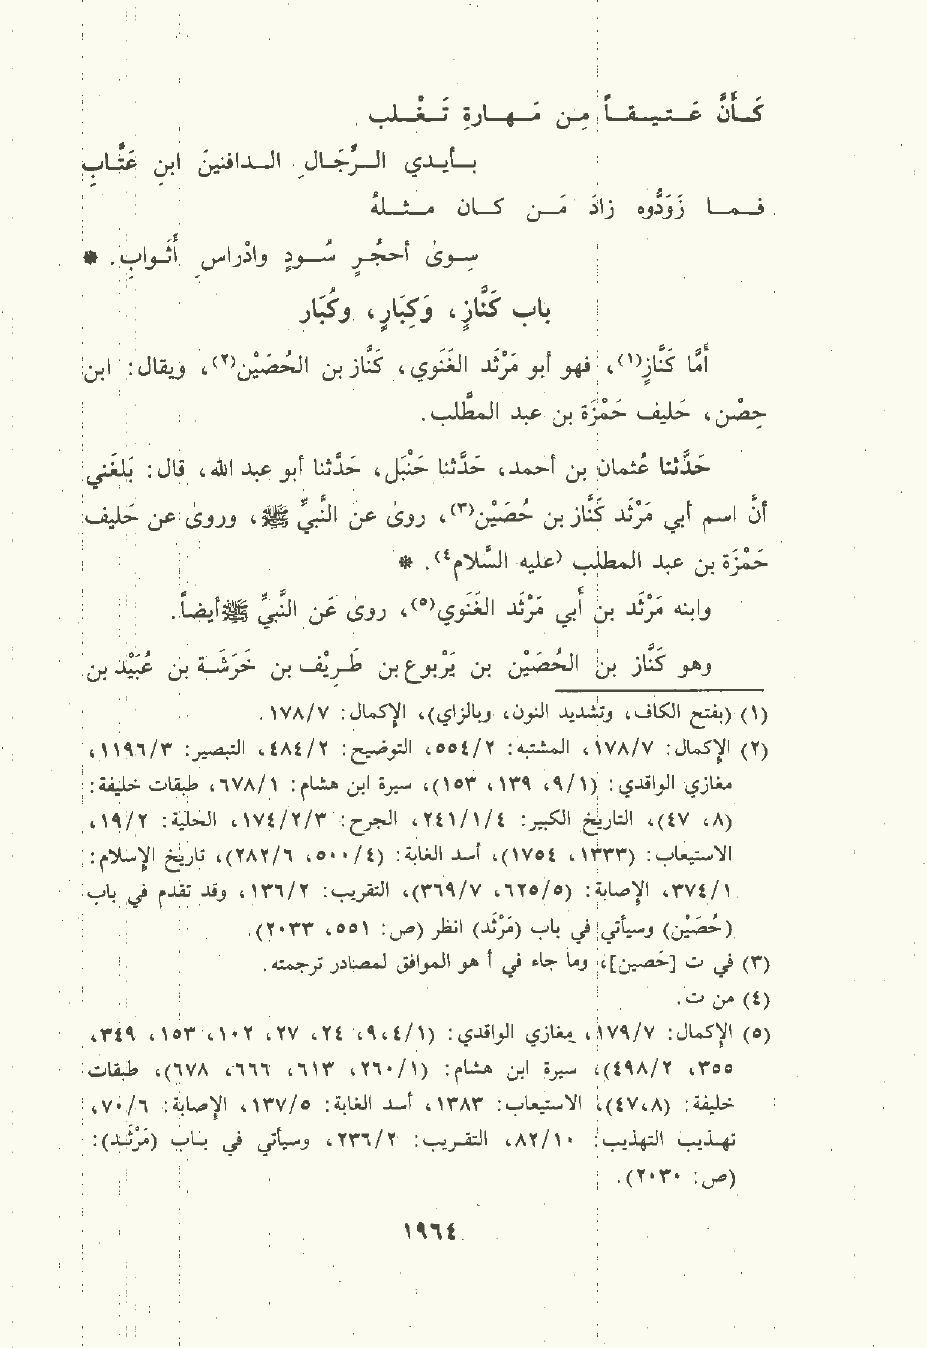 كَــأَنَّ عَــتــيــقــاً مِــن مَــهــارةِ تَــغْــلــب
بــأيــدي الــرِّجَــالِ الــدافنينَ ابنِ عَتَّــابِ
فــمــا زَوَّدوه زادَ مَــن كــان مــثــلــهُ
سِــوىٰ أحجُــرٍ سُــودٍ وادْراسِ أَثــوابِ. *
باب كَنَّازٍ، وَكِبَارٍ، وكُبَار
أمَّا كَنَّازٍ(١)، فهو أبو مَرْثد الغَنَوي، كَنَّاز بن الحُصَيْن(٢)، ويقال: ابن
حِصْن، حليف حَمْزة بن عبد المطَّلب.
حَدَّثنا عُثمان بن أحمد، حَدَّثنا حَنْبَل، حَدَّثنا أبو عبد الله، قال: بَلَغَني
أنَّ اسم أبي مَرْثد كَنَّاز بن حُصَيْن(٣)، روىٰ عن النَّبيِّ ﷺ، وروىٰ عن حليف
حَمْزة بن عبد المطلب (عليه السَّلام٤). *
وابنه مَرْثد بن أبي مَرْثد الغَنَوي(٥)، روىٰ عَن النَّبيِّ ﷺ أيضاً.
وهو كَنَّاز بن الحُصَيْن بن يَرْبوع بن طَرِيْف بن خَرَشَــة بن عُبَيْد بن
(١) (بفتح الكاف، وتشديد النون، وبالزاي)، الإكمال: ١٧٨/٧.
(٢) الإكمال: ١٧٨/٧، المشتبه: ٥٥٤/٢، التوضيح: ٤٨٤/٢، التبصير: ١١٩٦/٣،
مغازي الواقدي: (٩/١، ١٣٩، ١٥٣)، سيرة ابن هشام: ٦٧٨/١، طبقات خليفة:
(٨، ٤٧)، التاريخ الكبير: ٢٤١/١/٤، الجرح: ١٧٤/٢/٣، الحلية: ١٩/٢،
الاستيعاب: (١٣٣٣، ١٧٥٤)، أسد الغابة: (٥٠٠/٤، ٢٨٢/٦)، تاريخ الإسلام:
٣٧٤/١، الإصابة: (٦٢٥/٥، ٣٦٩/٧)، التقريب: ١٣٦/٢، وقد تقدم في باب
(حُصَيْن) وسيأتي في باب (مَرْثَد) انظر (ص: ٥٥١، ٢٠٣٣).
(٣) في ت [حَصين]، وما جاء في أ هو الموافق لمصادر ترجمته.
(٤) من ت.
(٥) الإكمال: ١٧٩/٧، مغازي الواقدي: (٩،٤/١، ٢٤، ٢٧، ١٠٢، ١٥٣، ٣٤٩،
٣٥٥، ٤٩٨/٢)، سيرة ابن هشام: (٢٦٠/١، ٦١٣، ٦٦٦، ٦٧٨)، طبقات
خليفة: (٤٧،٨)، الاستيعاب: ١٣٨٣، أسد الغابة: ١٣٧/٥، الإصابة: ٧٠/٦،
تهــذيب التهذيب: ٨٢/١٠، التقــريب: ٢٣٦/٢، وسيأتي في بــاب (مَرْثَــد):
(ص: ٢٠٣٠).
١٩٦٤